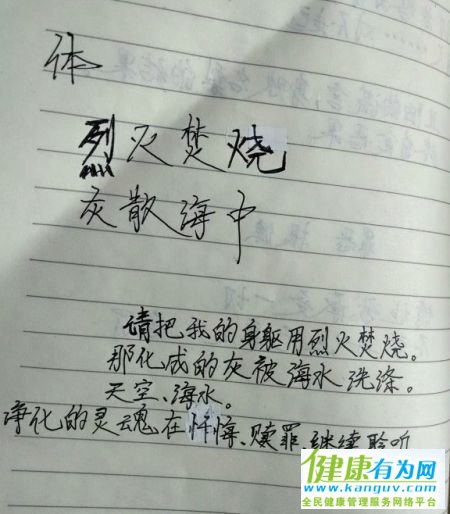 体
烈火焚烧
灰散海中
请把我的身躯用烈火焚烧。
那化成的灰被海水洗涤。
天空、海水。
净化的灵魂在忏悔、赎罪、继续聆听
健康有为网
www.kanguv.com
全民健康管理服务网络平台